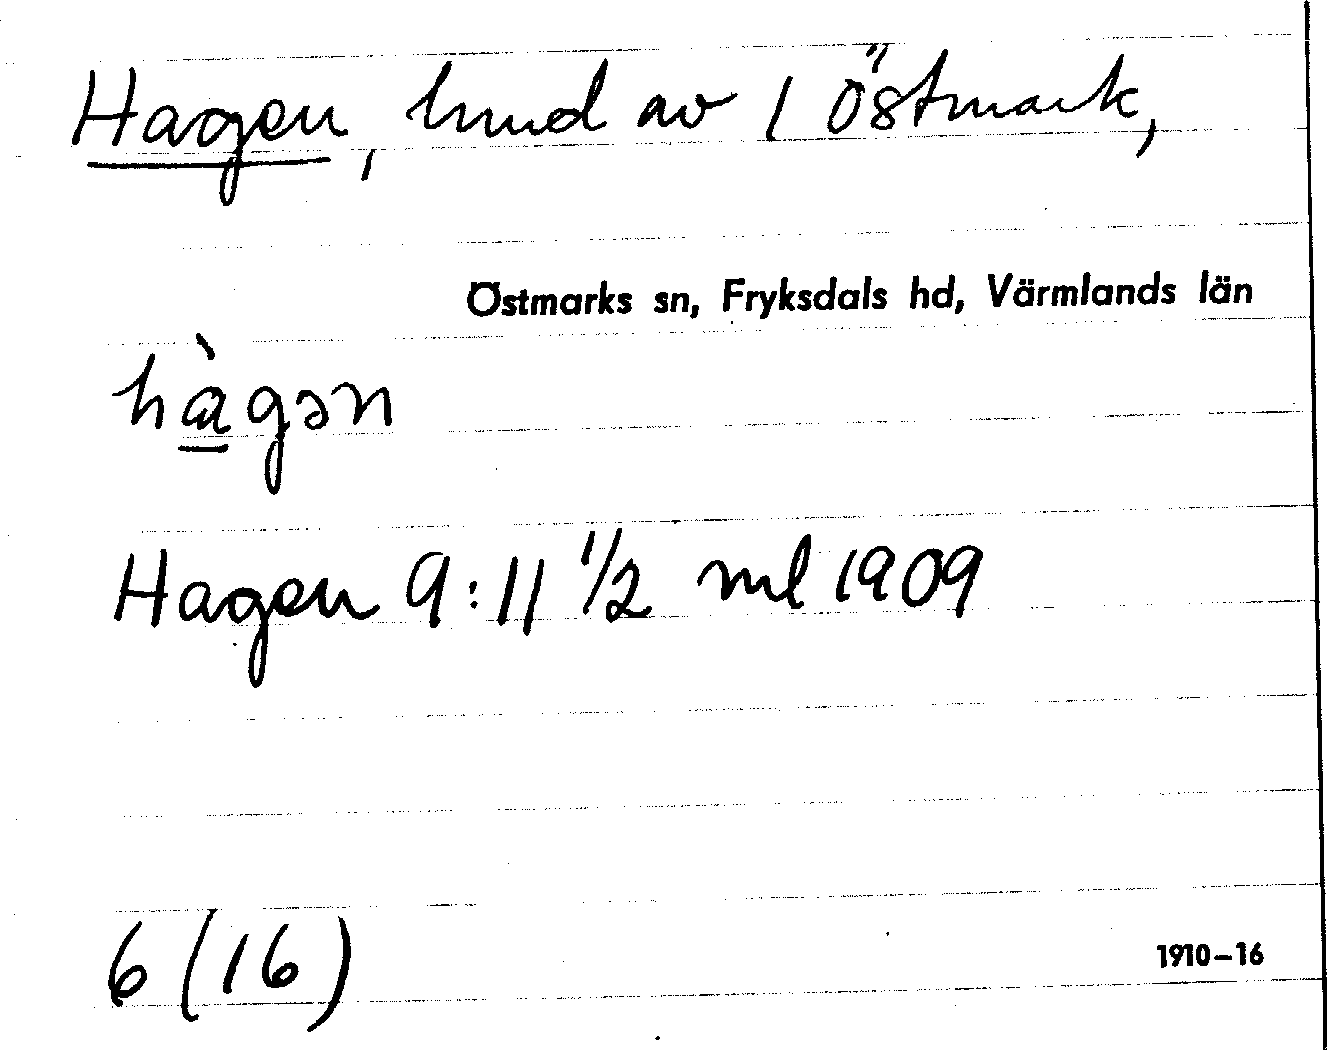 Hagen, hmd av 1 Östmark,
Östmarks sn, Fryksdals hd, Värmlands län
hà̱gən
Hagen 9:11 1/2 ml 1909
6 (16)
1910–16